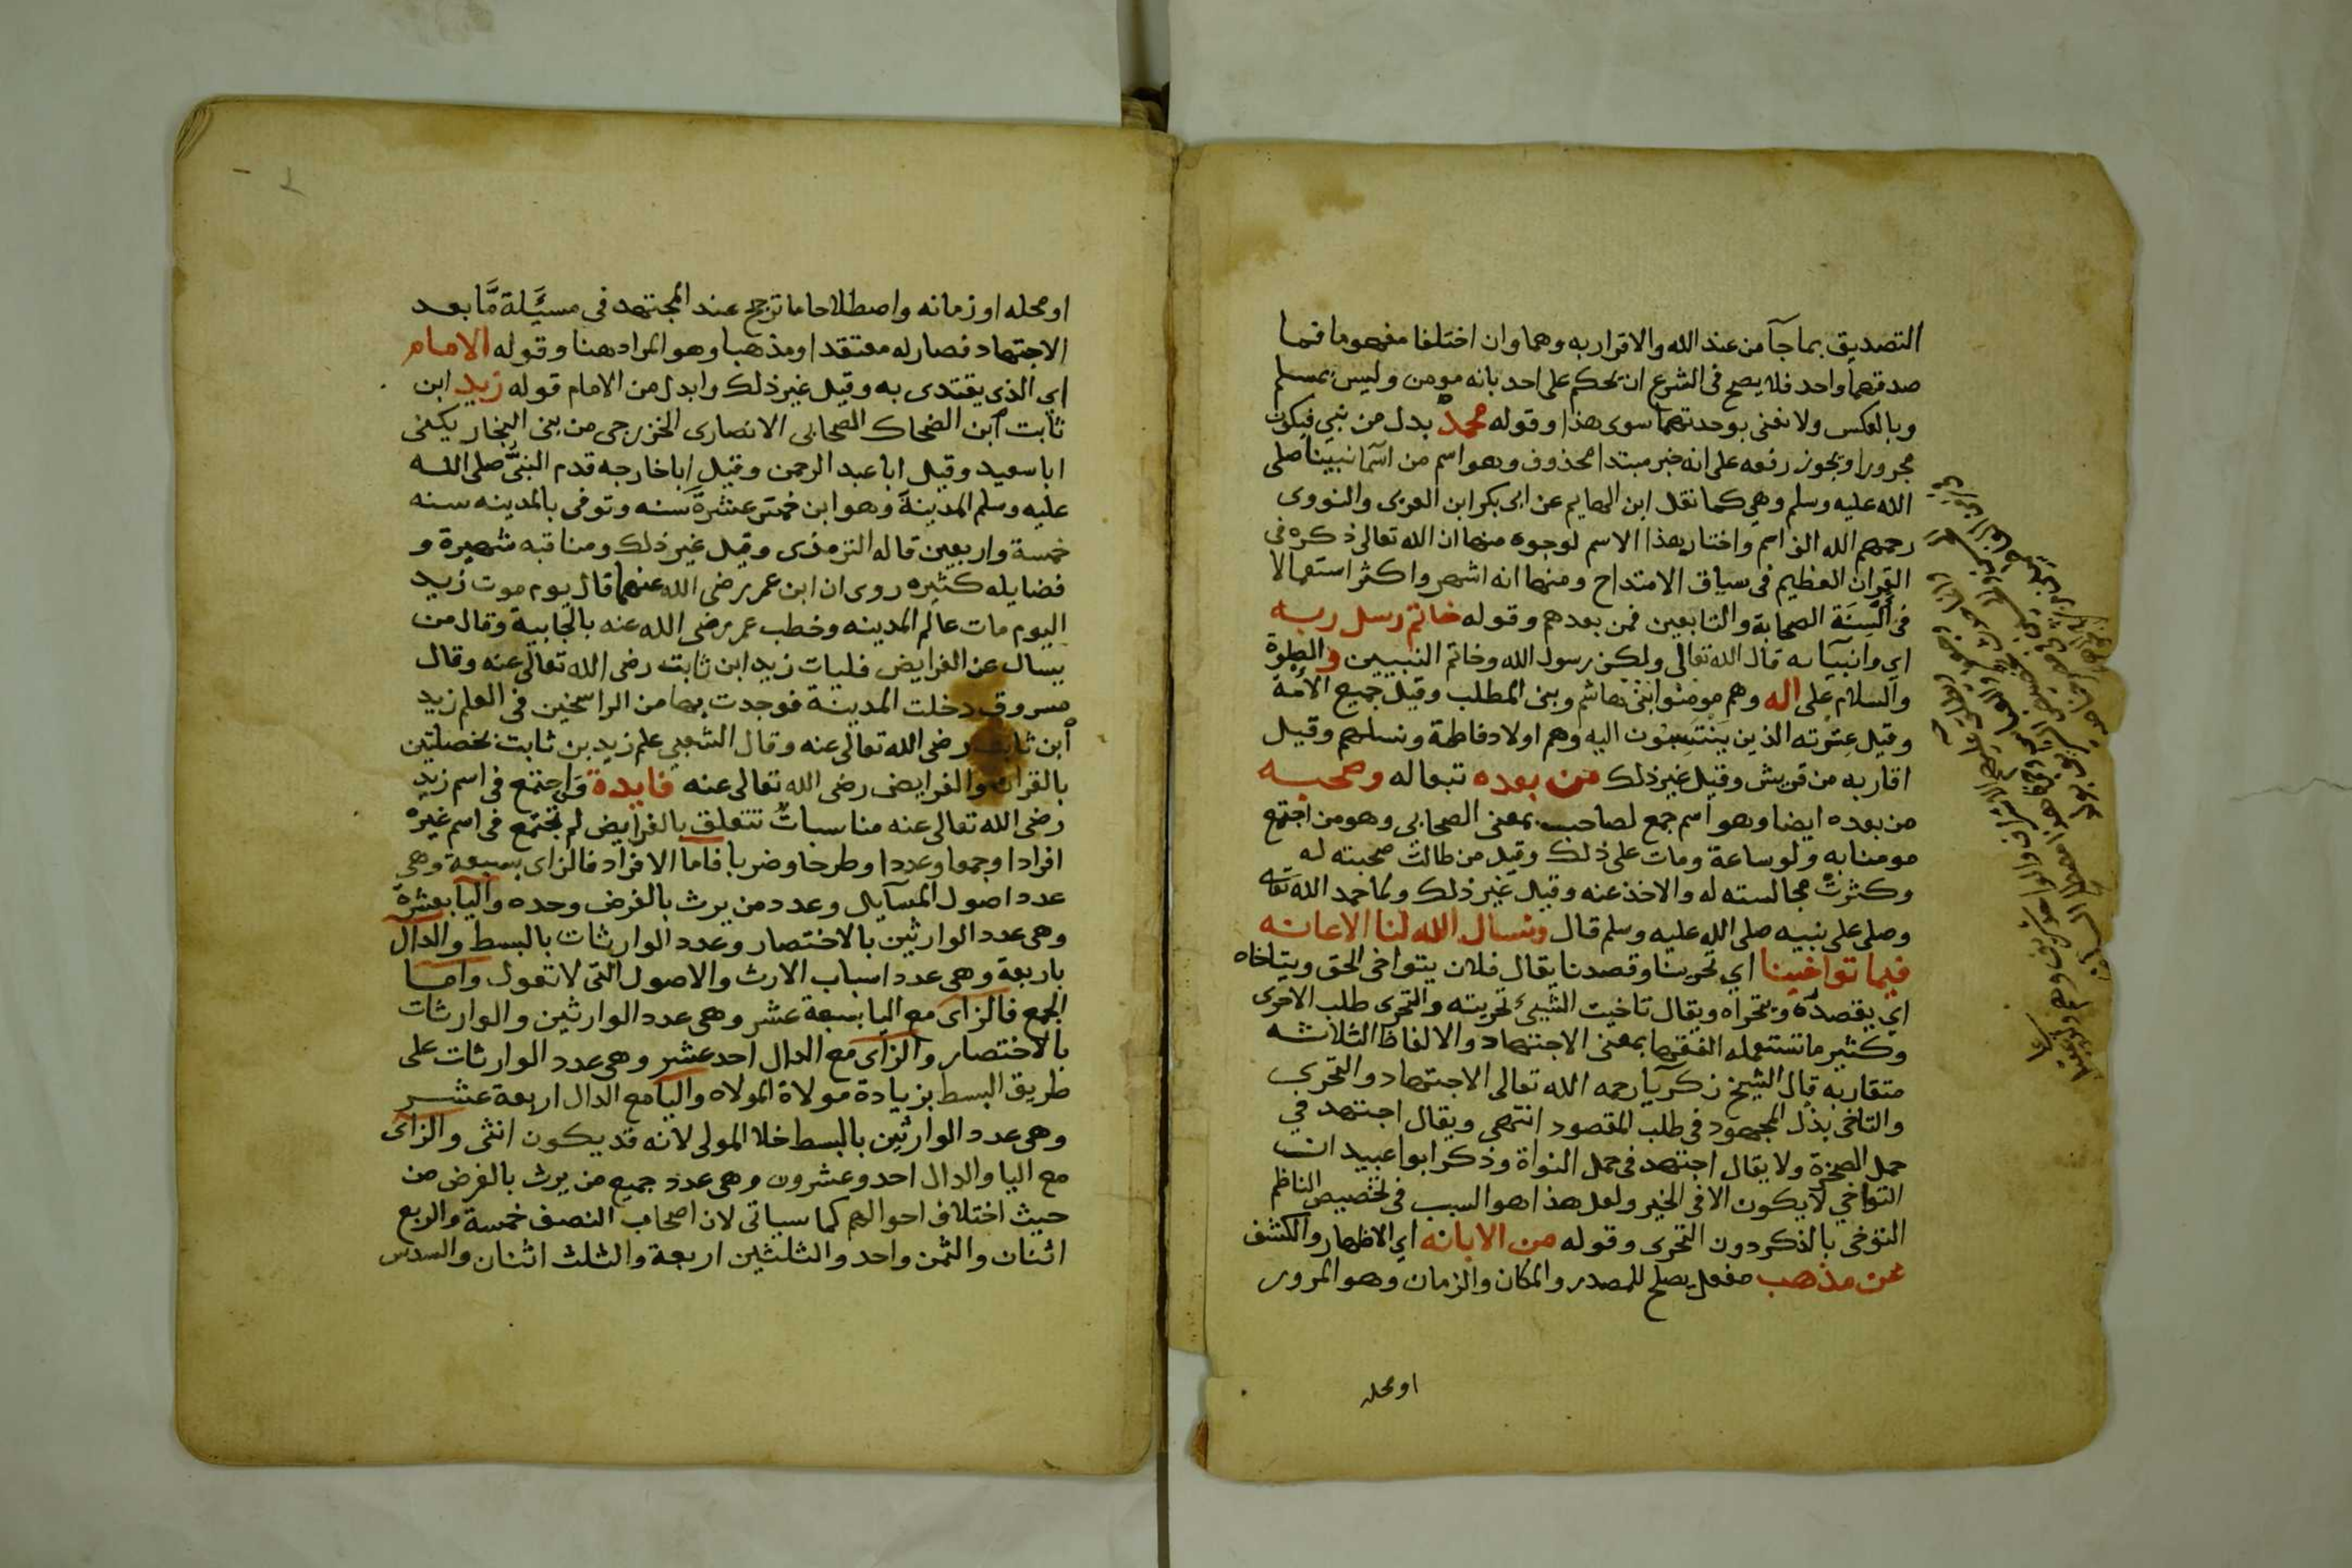 التصديق بما جآ من عند الله والاقرار به وهما وان اختلفا مفهوما فما
صدقهما واحد فلا يصح فى الشرع ان يحكم على احد بانه مومن وليس بمسلم
وبالعكس ولا نعنى بوحدتهما سوى هذا وقوله محمد بدل من نبى فيكون
مجرورا ويجوز رفعه على انه خبر مبتدا محذوف وهو اسم من اسما نبينا صلى
الله عليه وسلم وهي كما نقل ابن الهايم عن ابى بكر ابن العربى والنووى
رحمهم الله الف اسم واختار بهذا الاسم لوجوه منها ان الله تعالى ذكره فى
القران العظيم فى سياق الامتداح ومنها انه اشهر واكثر استعمالا
فى السنة الصحابة والتابعين فمن بعدهم وقوله خاتم رسل ربه
اى وانبيآيه قال الله تعالى ولكن رسول الله وخاتم النبيين والصلوة
والسلام على اله وهم مومنوا بنى هاشم وبنى المطلب وقيل جميع الامة
وقيل عترته الذين ينتسبون اليه وهم اولاد فاطمة ونسلهم وقيل
اقاربه من قريش وقيل غير ذلك من بعده تبعا له وصحبه
من بعده ايضا وهو اسم جمع لصاحب بمعنى الصحابي وهو من اجتمع
مومنا به ولو ساعة ومات على ذلك وقيل من طالت صحبته له
وكثرت مجالسته له والاخذ عنه وقيل غير ذلك ولما حمد الله تعالى
وصلى على نبيه صلى الله عليه وسلم قال ونسال الله لنا الاعانه
فيما تواخينا اى تحرينا وقصدنا يقال فلان يتواخى الحق ويتاخاه
اى يقصده ويتحراه ويقال تاخيت الشيئ تحريته والتحرى طلب الاحرى
وكثير ما تستعمله الفقها بمعنى الاجتهاد والالفاظ الثلاثه
متقاربه قال الشيخ زكريا رحمه الله تعالى الاجتهاد والتحرى
والتاخى بذل المجهود فى طلب المقصود انتهى ويقال اجتهد في
حمل الصخرة ولا يقال اجتهد فى حمل النواة وذكر ابوا عبيد ان
التواخي لا يكون الا فى الخير ولعل هذا هو السبب فى تخصيص الناظم
التوخى بالذكر دون التحرى وقوله من الابانه اي الاظهار والكشف
عن مذهب مفعل يصلح للمصدر والمكان والزمان وهو المرور
او محله
او محله او زمانه واصطلاحا ما ترجح عند المجتهد فى مسئلة ما بعد
الاجتهاد فصار له معتقدا ومذهبا وهو المراد هنا وقوله الامام
اى الذى يقتدى به وقيل غير ذلك وابدل من الامام قوله زيد ابن
ثابت ابن الضحاك الصحابي الانصارى الخزرجى من بنى النجار يكنى
ابا سعيد وقيل ابا عبد الرحمن وقيل ابا خارجه قدم النبى صلى الله
عليه وسلم المدينة وهو ابن خمس عشرة سنه وتوفى بالمدينه سنه
خمسة واربعين قاله الترمذى وقيل غير ذلك ومناقبه شهيرة و
فضايله كثيره روى ان ابن عمر رضى الله عنهما قال يوم موت زيد
اليوم مات عالم المدينه وخطب عمر رضى الله عنه بالجابية وقال من
يسال عن الفرايض فليات زيد ابن ثابت رضى الله تعالى عنه وقال
مسروق دخلت المدينة فوجدت بها من الراسخين فى العلم زيد
ابن ثابت رضى الله تعالى عنه وقال الشعبي علم زيد بن ثابت بخصلتين
بالقران والفرايض رضى الله تعالى عنه فايدة واجتمع فى اسم زيد
رضى الله تعالى عنه مناسبات تتعلق بالفرايض لم تجتمع فى اسم غيره
افرادا وجمعا وعددا وطرحا وضربا فاما الافراد فالزاى بسبعة وهى
عدد اصول المسآيل وعدد من يرث بالفرض وحده واليا بعشرة
وهى عدد الوارثين بالاختصار وعدد الوارثات بالبسط والدال
باربعة وهى عدد اسباب الارث والاصول التى لا تعول واما
الجمع فالزاى مع اليا بسبعة عشر وهى عدد الوارثين والوارثات
بالاختصار والزاى مع الدال احد عشر وهى عدد الوارثات على
طريق البسط بزيادة مولاة المولاه واليا مع الدال اربعة عشر
وهى عدد الوارثين بالبسط خلا المولى لانه قد يكون انثى والزاى
مع اليا والدال احد وعشرون وهى عدد جميع من يرث بالفرض من
حيث اختلاف احوالهم كما سياتى لان اصحاب النصف خمسة والربع
اثنان والثمن واحد والثلثين اربعة والثلث اثنان والسدس